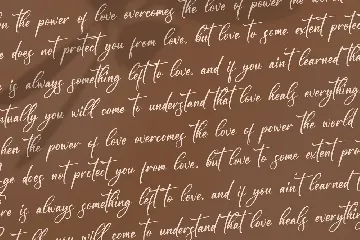 en the power of love overcomes the love of power the world
e does not protect you from love, but love to some extent protec
e is always something left to love, and if you ain't learned tha
tually you will come to understand that love heals everything,
hen the power of love overcomes the love of power the world
ge does not protect you from love, but love to some extent pro
re is always something left to love, and if you ain't learned
you will come to understand that love heals everythin